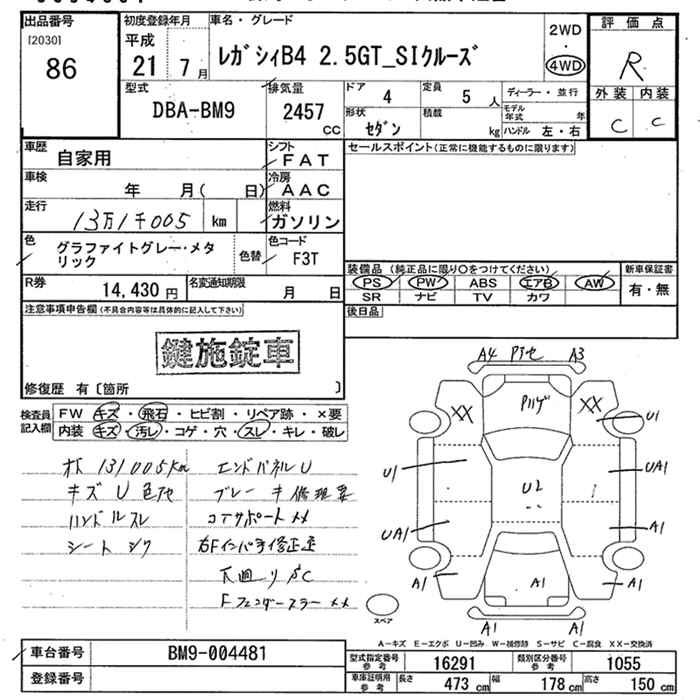 出品番号
[2030]
86
初度登録年月
平成
21 7 月
車名・グレード
レガシィB4 2.5GT_SIクルーズ
2WD
・
4WD
評価点
R
外装 内装
C C
型式
DBA-BM9
排気量
2457
CC
ドア
4
定員
5 人
形状
セダン
積載
kg
ディーラー・並行
モデル年式 年
ハンドル 左・右
車歴
自家用
シフト
FAT
車検
年 月( 日)
冷房
AAC
走行
13万1千005 km
燃料
ガソリン
色
グラファイトグレー・メタリック
色替
色コード
F3T
R券
14,430 円
名変通知期限
月 日
セールスポイント(正常に機能するものに限ります)
装備品 (純正品に限り○をつけてください)
PS PW ABS エアB AW
SR ナビ TV カワ
新車保証書
有・無
後日品
注意事項申告欄(不具合内容等は具体的に記入して下さい)
鍵施錠車
修復歴 有〔箇所 〕
検査員記入欄
FW キズ・飛石・ヒビ割・リペア跡・×要
内装 キズ・汚レ・コゲ・穴・スレ・キレ・破レ
131005km
キズ U 色アセ
ハンドルスレ
シート シワ
エンドパネルU
ブレーキ修理要
コアサポートメメ
右Fインパネ修正迹
下廻りSC
Fフェンダーステーメメ
A4 A3
XX XX
U1 U1
UA1 UA1
U2
A1 A1
A1 A1
A1 A1
スペア
A-キズ E-エクボ U-凹み W-補修跡 S-サビ C-腐食 XX-交換済
車台番号
BM9-004481
登録番号
型式指定番号 参考
16291
類別区分番号 参考
1055
車庫証明用 参考
長さ 473 cm 幅 178 cm 高さ 150 cm